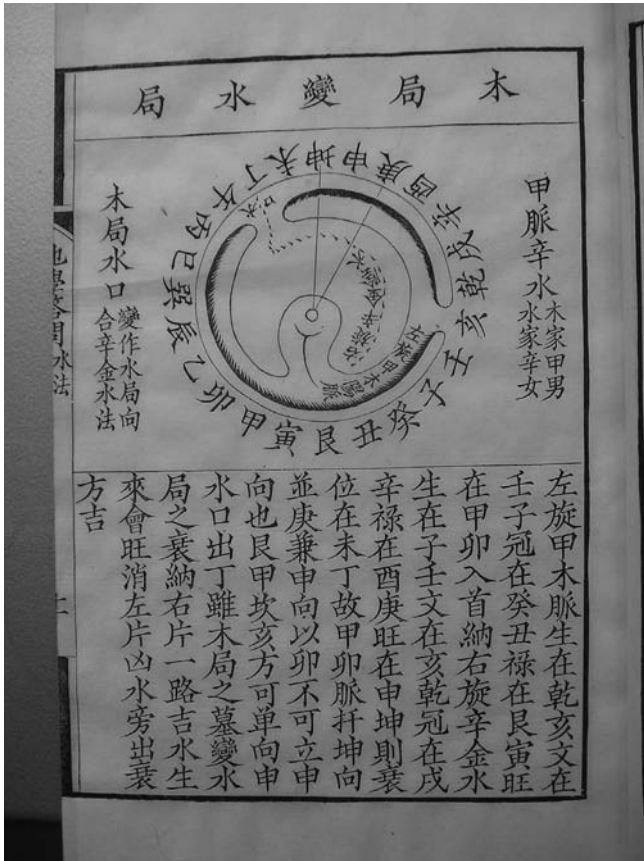 木局變水局
甲脈辛水
木家甲男
水家辛女
木局水口
變作水局向
合辛金水法
壬子癸丑艮寅甲卯乙辰巽巳丙午丁未坤申庚酉辛戌乾亥
左旋甲木陽脈
右旋辛金陰水
水口
左旋甲木脈生在乾亥文在
壬子冠在癸丑祿在艮寅旺
在甲卯入首納右旋辛金水
生在子壬文在亥乾冠在戌
辛祿在酉庚旺在申坤則衰
位在未丁故甲卯脈扦坤向
並庚兼申向以卯不可立申
向也艮甲坎亥方可单向申
水口出丁雖木局之墓變水
局之衰納右片一路吉水生
來會旺消左片凶水旁出衰
方吉
地學答問
水法